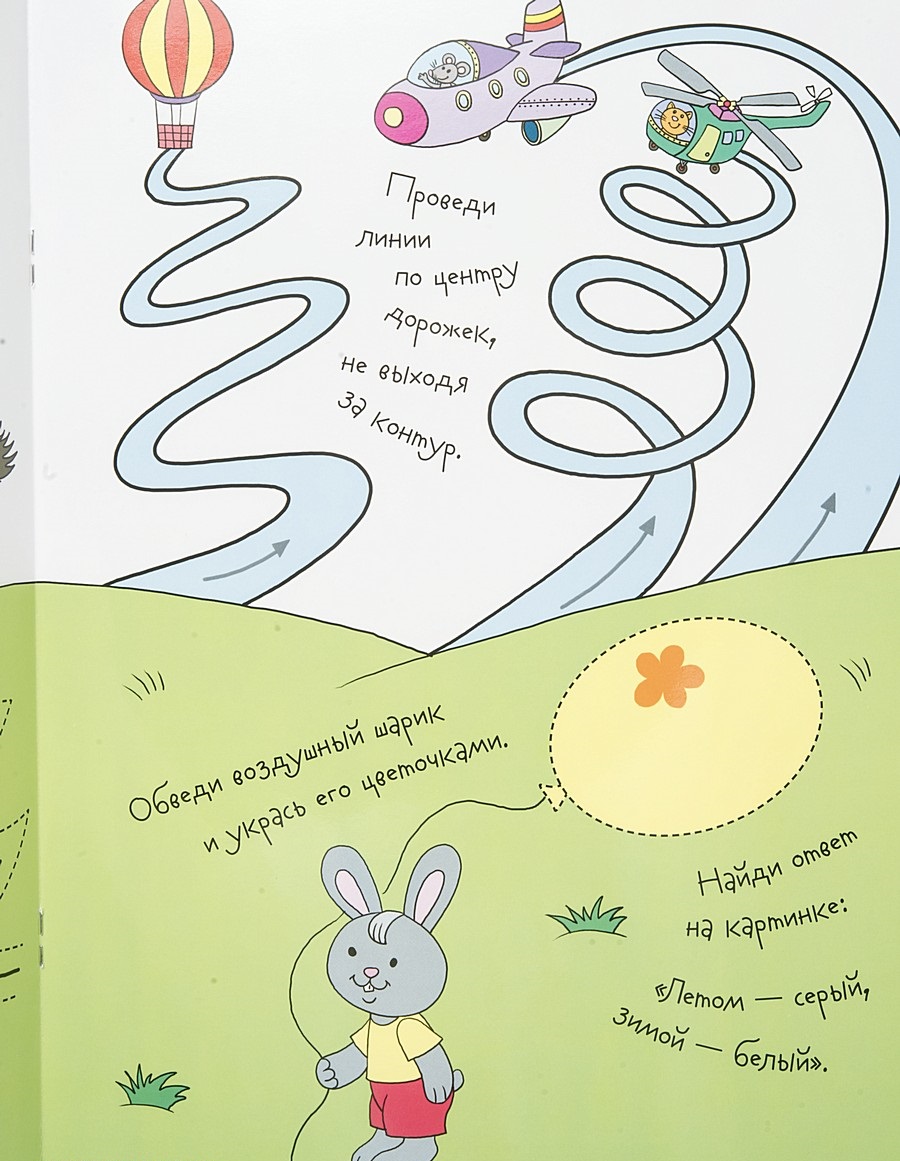 Проведи
линии
по центру
дорожек,
не выходя
за контур.
Обведи воздушный шарик
и укрась его цветочками.
Найди ответ
на картинке:
«Летом — серый,
зимой — белый».